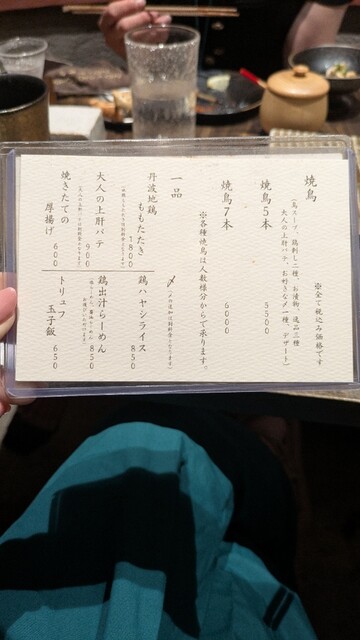 焼鳥
※全て税込み価格です
(鳥スープ、鶏刺し二種、お漬物、逸品三種
大人の上肝パテ、お好きな〆一種、デザート)
焼鳥5本 5500
焼鳥7本 6000
※各種焼鳥は人数様分からで承ります。
一品
丹波地鶏
ももたたき
1800
大人の上肝パテ
900
焼きたての
厚揚げ 600
〆
(〆の追加は別料金となります)
鶏ハヤシライス
850
鶏出汁らーめん
850
トリュフ
玉子飯 650